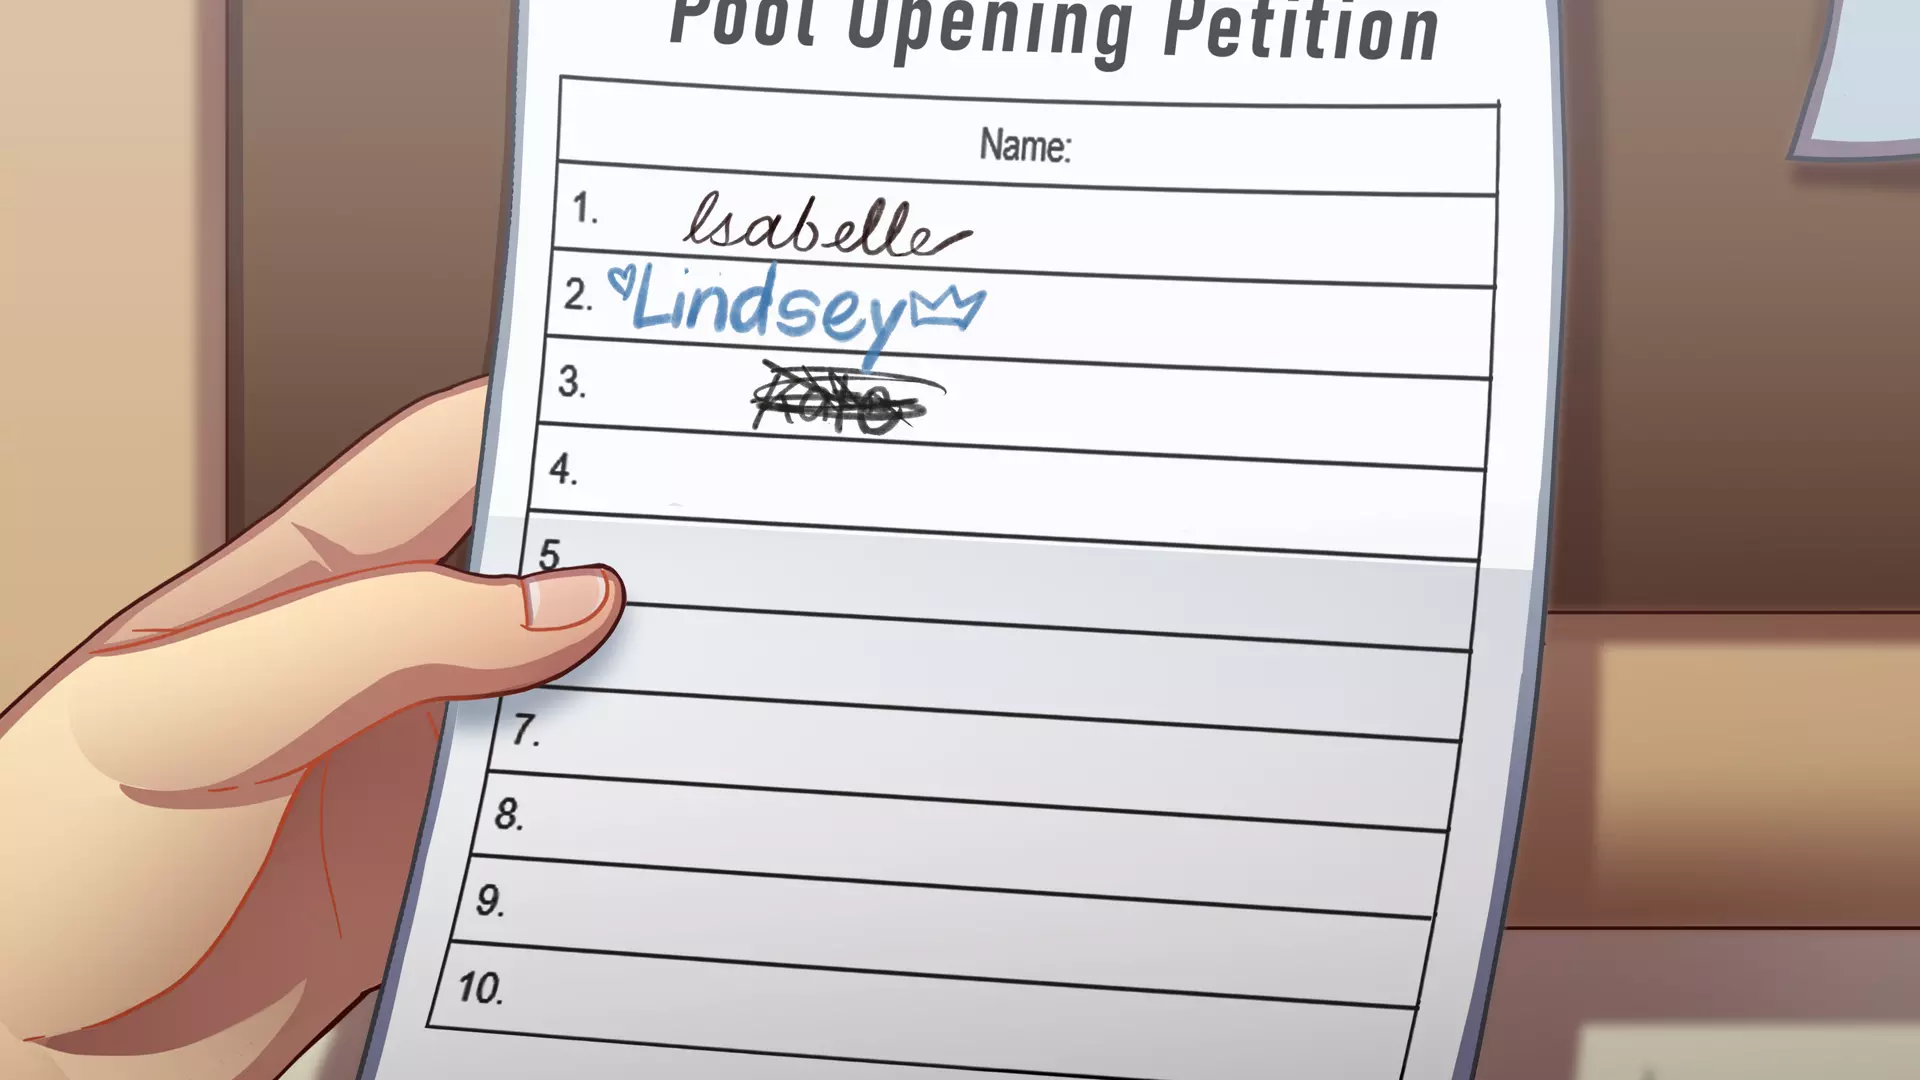 Pool Opening Petition
Name:
1. Isabelle
2. Lindsey
3.
4.
5
7.
8.
9.
10.